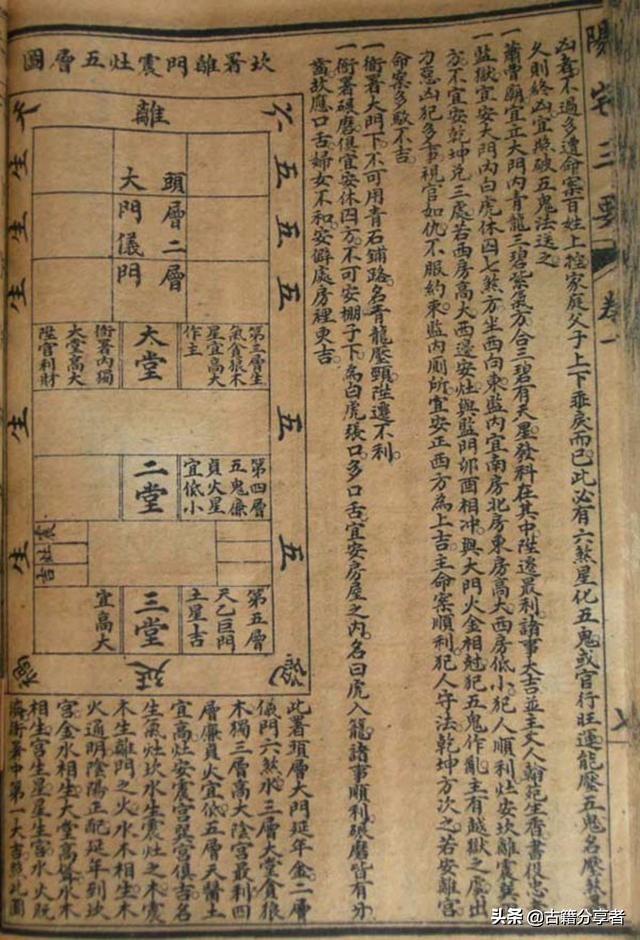 陽宅三要 卷一
凶毒不過多遭命案百姓上控家庭父子上下乖戾而已此必有六煞星化五鬼或官行旺運能壓五鬼名壓煞
久則終凶宜照破五鬼法送之
一蕭曹廟宜立大門內青龍三碧紫氣方合三碧有天星發科在其中陞遷最利諸事大吉並主文人翰苑生香書役忠
一監獄宜安大門內白虎休囚七煞方坐西向東監內宜南房北房東房高大西房低小犯人順利灶安坎離震巽
方不宜安乾坤兌三處若西房高大西邊安灶與監門卯酉相冲與大門火金相尅犯五鬼作亂主有越獄之虞出
力惡凶犯多事視官如仇不服約束監內厠所宜安正西方為上吉主命案順利犯人守法乾坤方次之若安離宮
命案多駁不吉
一衙署大門下不可用青石鋪路名青龍壓頸陞遷不利
一衙署碾磨俱宜安休囚方不可安棚子下為白虎張口多口舌宜安房屋之內名曰虎入籠諸事順利碾磨皆有分
齒故應口舌婦女不和安僻處房裡更吉
坎署離門震灶五層圖
離
六
天
五
五
五
五
五
生
生
生
生
生
頭層二層
大門儀門
第三層生
氣貪狼木
星宜高大
作主
大堂
衙署內獨
大堂高大
陞官利財
第四層
五鬼廉
貞火星
宜低小
二堂
震灶吉
第五層
天乙巨門
土星吉
三堂
宜高大
延
此署頭層大門延年金二層
儀門六煞水三層大堂貪狼
木獨三層高大陰宮最利四
層廉貞火宜低五層天醫土
宜高灶安震宮巽宮俱吉名
生氣灶坎水生震灶之木震
木生離門之火水木相生木
火通明陰陽正配延年到坎
宮金水相生大堂高聳水木
相生宮生星星生宮水火既
濟衙署中第一大吉照此圖
头条 @古籍分享者